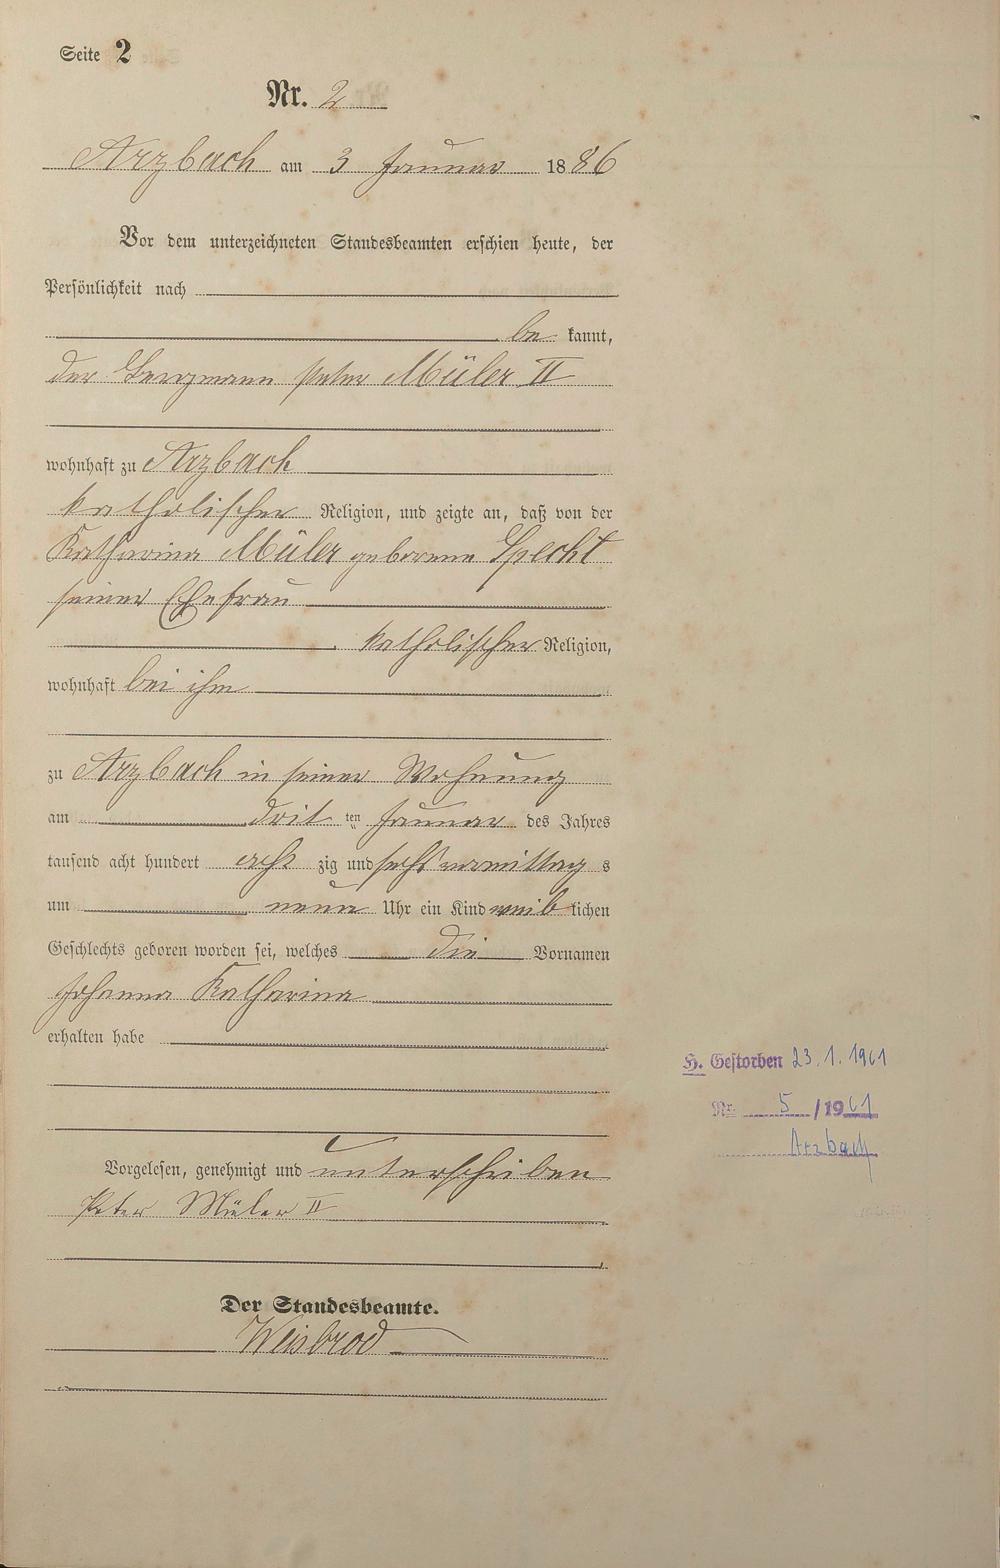 Seite 2
Nr. 2
Arzbach am 3 Januar 1886
Vor dem unterzeichneten Standesbeamten erschien heute, der
Persönlichkeit nach
be kannt,
der Bergmann Peter Müler II
wohnhaft zu Arzbach
katholischer Religion, und zeigte an, daß von der
Katharina Müler geborene Specht
seiner Ehefrau
katholischer Religion,
wohnhaft bei ihm
zu Arzbach in seiner Wohnung
am drit ten Januar des Jahres
tausend acht hundert acht zig und sechs vormittag s
um neun Uhr ein Kind weib lichen
Geschlechts geboren worden sei, welches die Vornamen
Johanna Katharina
erhalten habe
H. Gestorben 23.1.1961
Nr. 5 /1961
Arzbach
Vorgelesen, genehmigt und unterschriben
Peter Müler II
Der Standesbeamte.
Weisbrod